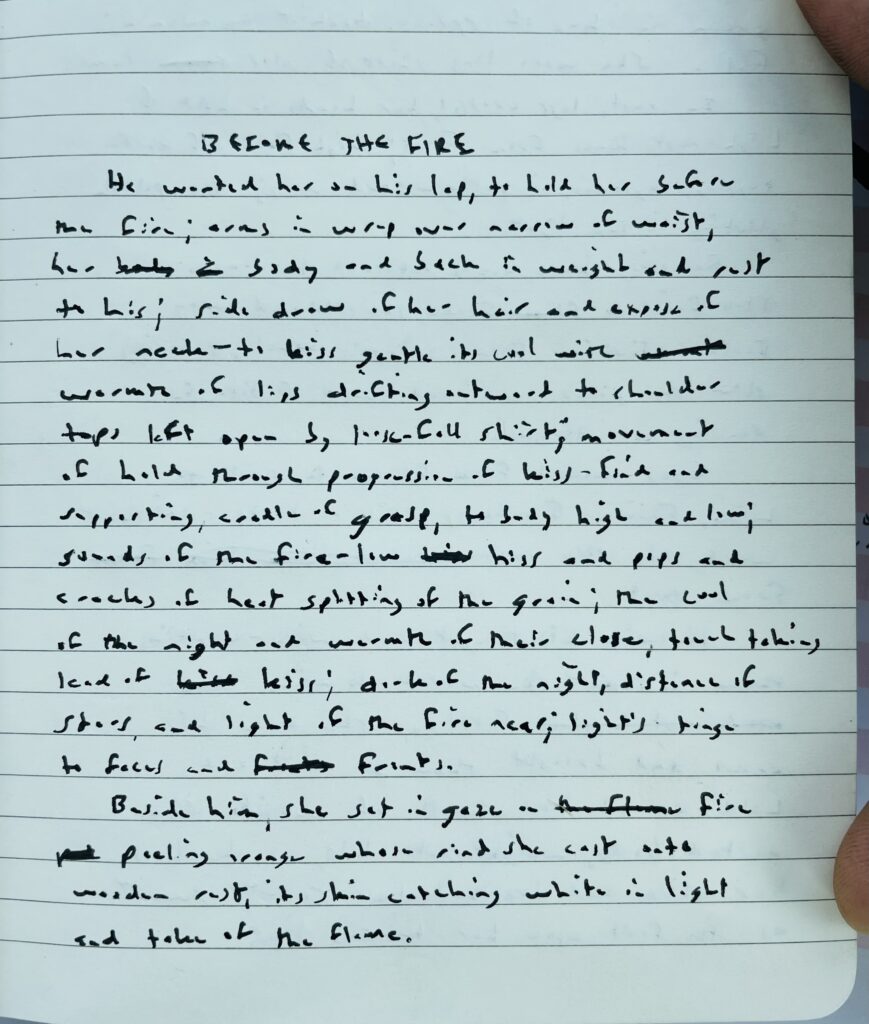 BEFORE THE FIRE
He wanted her on his lap, to hold her before
the fire; arms in wrap over narrow of waist,
her body and back in weight and rest
to his; side draw of her hair and expose of
her neck—to kiss gentle its cool with
warmth of lips drifting outward to shoulder
tops left open by loose-fall shirt; movement
of hold through progression of kiss-find and
supporting, cradle of grasp, to body high and low;
sounds of the fire-low hiss and pops and
cracks of heat splitting of the grain; the cool
of the night and warmth of their close, touch taking
lead of kiss; dark of the night, distance of
stars, and light of the fire near; light's tinge
to faces and fronts.
Beside him, she sat in gaze on fire
peeling orange whose rind she cast onto
wooden rest, its skin catching white in light
and take of the flame.